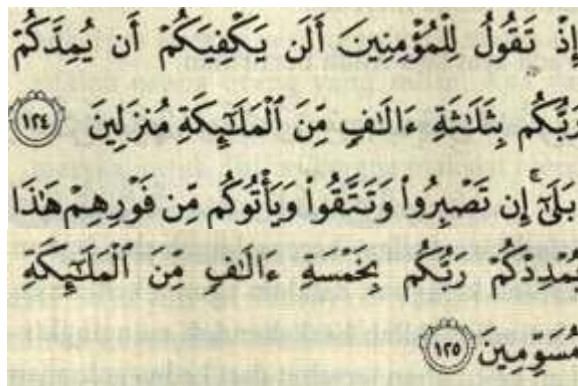 إِذْ تَقُولُ لِلْمُؤْمِنِينَ أَلَن يَكْفِيَكُمْ أَن يُمِدَّكُمْ
رَبُّكُم بِثَلَٰثَةِ ءَالَٰفٍ مِّنَ ٱلْمَلَٰٓئِكَةِ مُنزَلِينَ ١٢٤
بَلَىٰٓ ۚ إِن تَصْبِرُوا۟ وَتَتَّقُوا۟ وَيَأْتُوكُم مِّن فَوْرِهِمْ هَٰذَا
يُمْدِدْكُمْ رَبُّكُم بِخَمْسَةِ ءَالَٰفٍ مِّنَ ٱلْمَلَٰٓئِكَةِ
مُسَوِّمِينَ ١٢٥